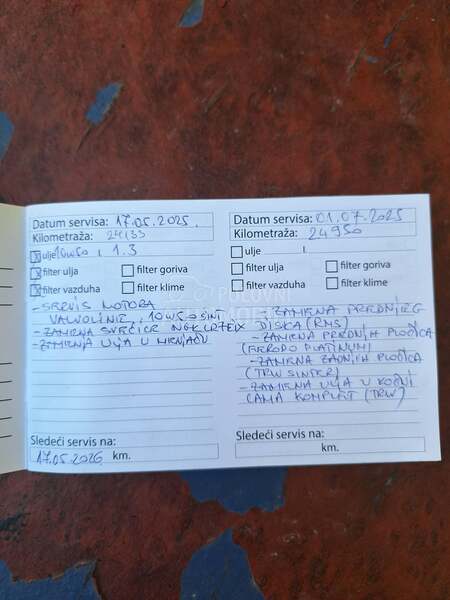 Datum servisa: 17.05.2025.
Kilometraža: 24133
ulje 10W50 1.3
filter ulja
filter goriva
filter vazduha
filter klime
- SERVIS MOTORA
VALVOLINE, 10W50 SINT
- ZAMENA SVEĆICE NGK
- ZAMENA ULJA U MENJAČU
Sledeći servis na:
17.05.2026 km.
Datum servisa: 01.07.2025
Kilometraža: 24950
ulje l.
filter ulja
filter goriva
filter vazduha
filter klime
- ZAMENA PREDNJEG
DISKA (RMS)
- ZAMENA PREDNJIH PLOČICA
(FERODO PLATINUM)
- ZAMENA ZADNJIH PLOČICA
(TRW SINTER)
- ZAMENA ULJA U KOČNI
CAMA KOMPLET (TRW)
Sledeći servis na:
km.
POLOVNI